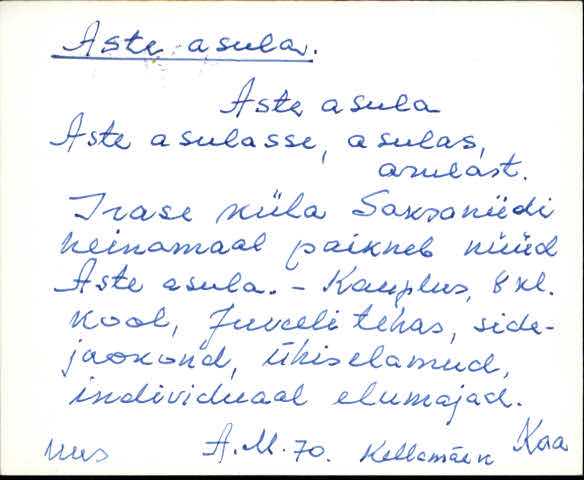 Aste asula.
Aste asula
Aste asulasse, asulas,
asulast.
Irase küla Saksaniidi
heinamaal paikneb nüüd
Aste asula. - Kauplus, 8 kl.
kool, Juveeli tehas, side-
jaoskond, ühiselamud,
individuaal elumajad.
Uus A.M. 70. Kellamäen Kaa